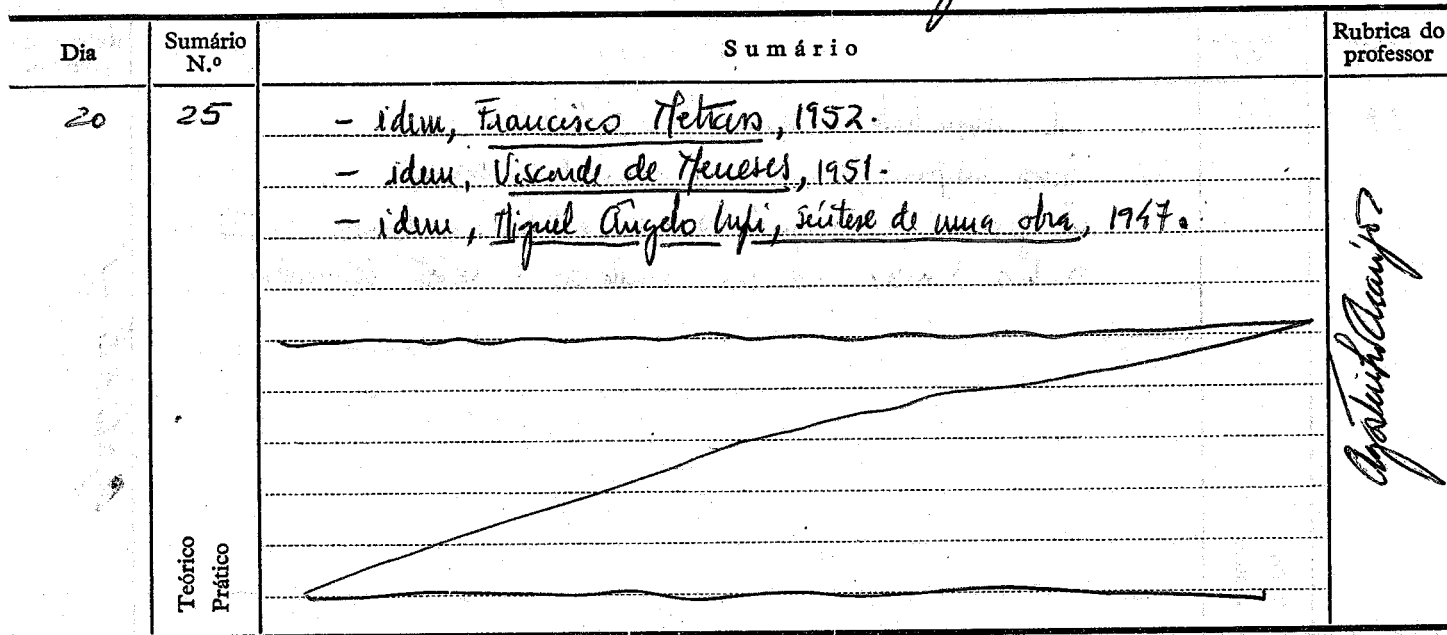 Dia Sumário N.º Sumário Rubrica do professor
20 25 - idem, Francisco Metrass, 1952.
- idem, Visconde de Meneses, 1951.
- idem, Miguel Ângelo Lupi, síntese de uma obra, 1947.
Agostinho Araújo
Teórico
Prático